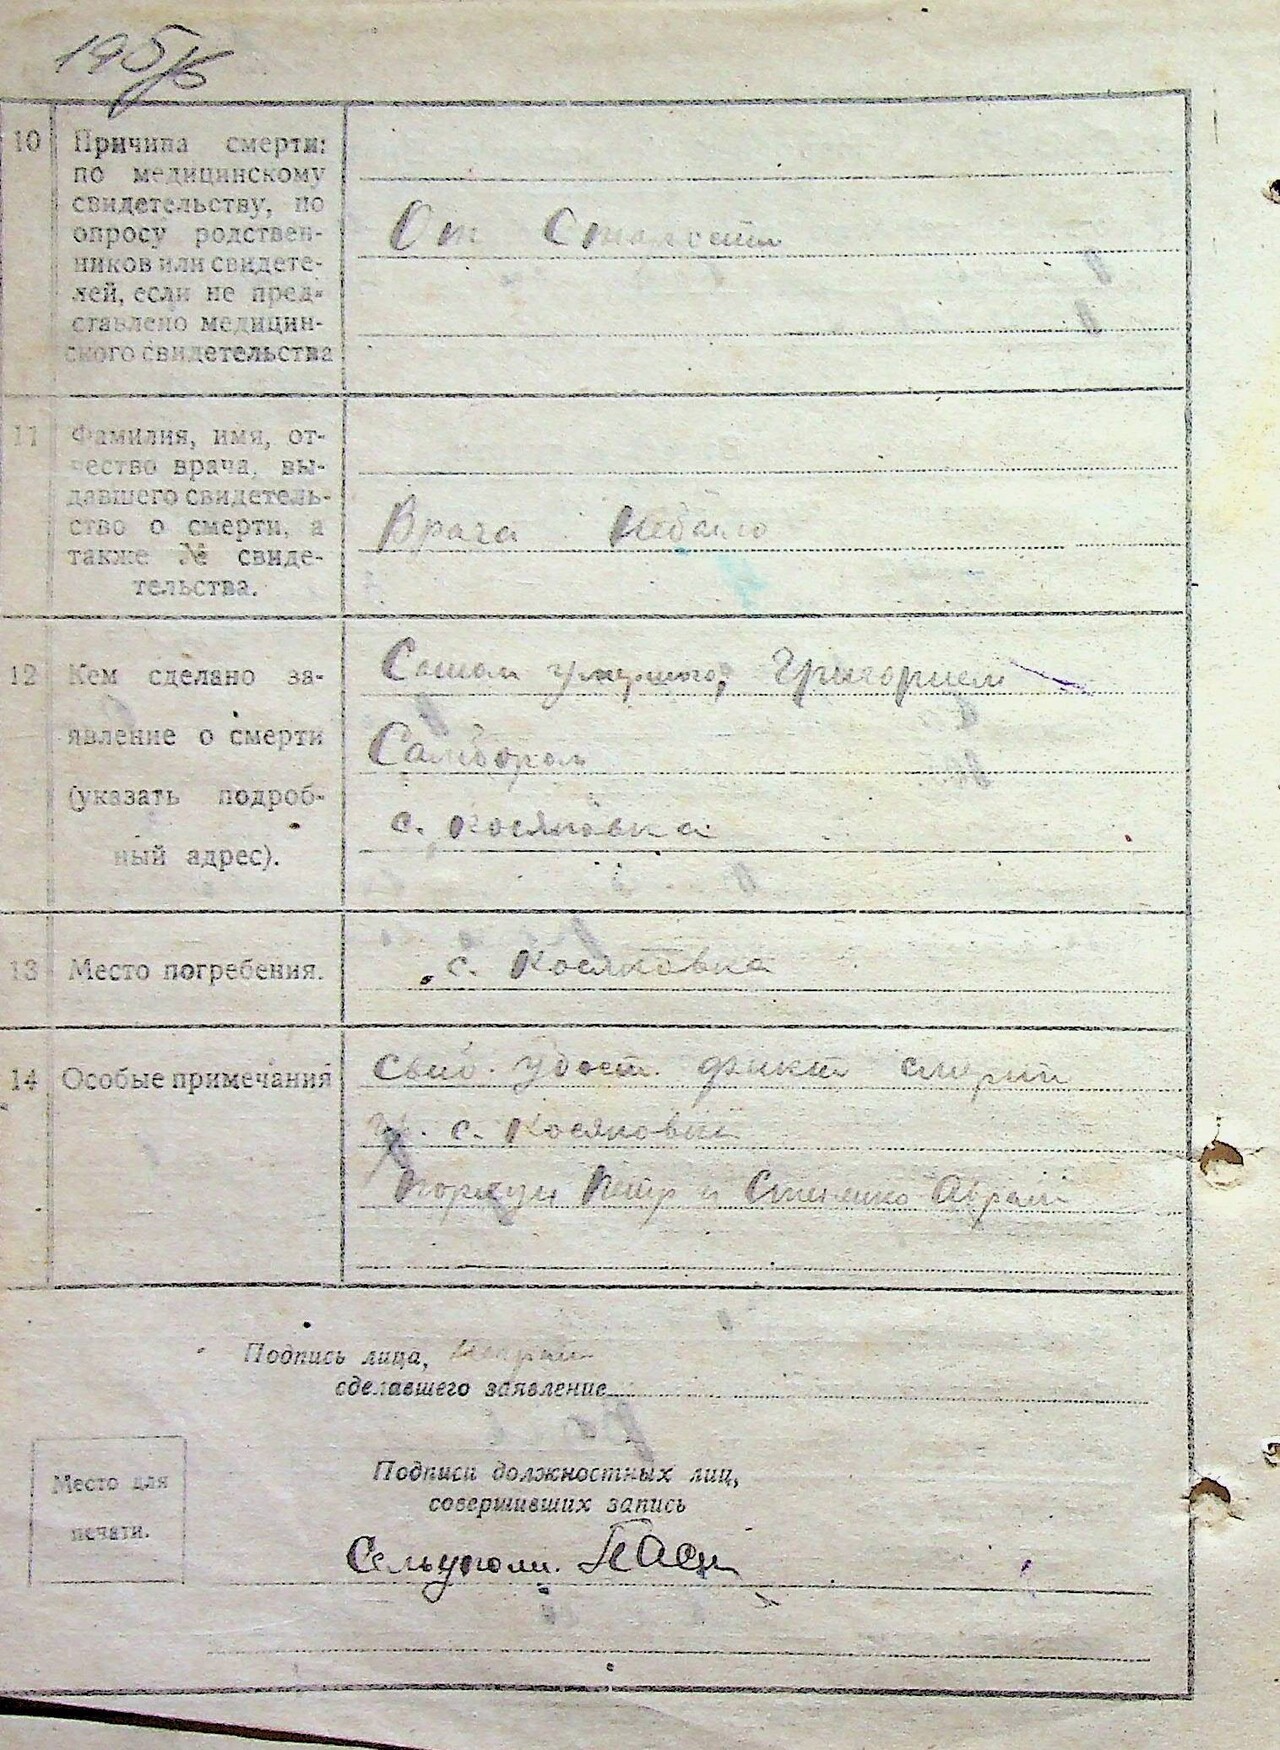 10
Причина смерти:
по медицинскому
свидетельству, по
опросу родствен-
ников или свидете-
лей, если не пред-
ставлено медицин-
ского свидетельства
От Старости
11
Фамилия, имя, от-
чество врача, вы-
давшего свидетель-
ство о смерти, а
также № свиде-
тельства.
Врача небыло
12
Кем сделано за-
явление о смерти
(указать подроб-
ный адрес).
умершого, Григорием
Самбором
с. Косяковка
13
Место погребения.
с. Косяковка
14
Особые примечания
Свид. удост. факт смерти
гр. с. Косяковки
Петр и Стненко Абрам
Подпись лица,
сделавшего заявление
Подписи должностных лиц,
совершивших запись
Место для
печати.
Сельуполн.